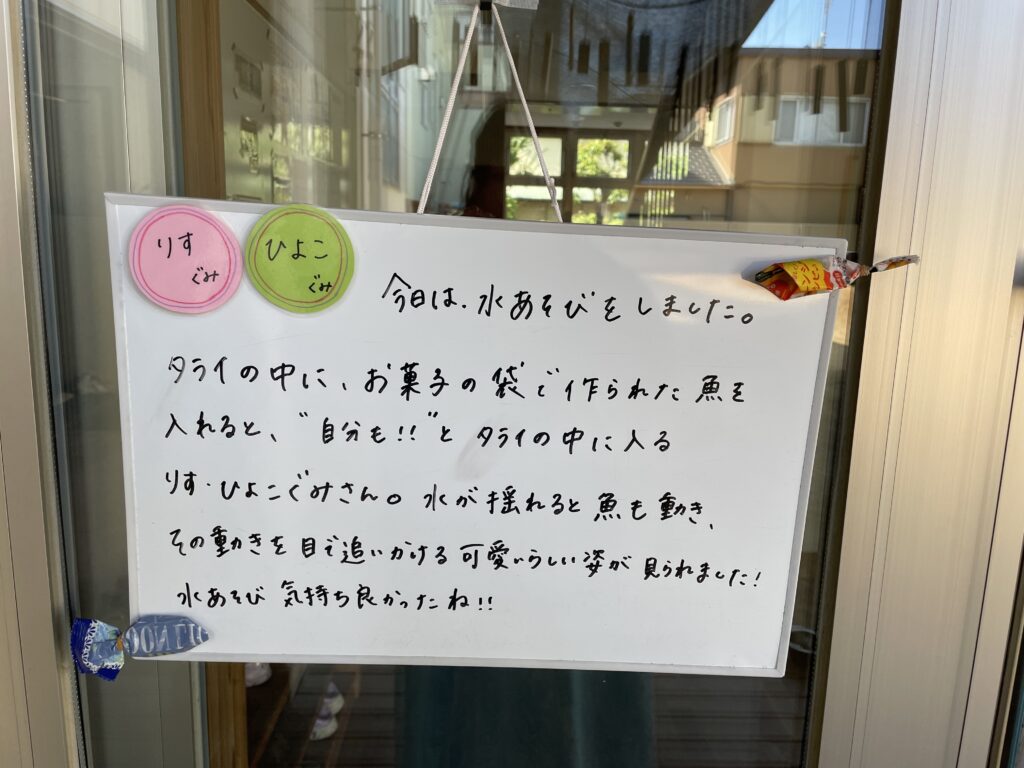 りす
ぐみ
ひよこ
ぐみ
今日は、水あそびをしました。
タライの中に、お菓子の袋で作られた魚を
入れると、"自分も!!"と タライの中に入る
りす・ひよこぐみさん。水が揺れると魚も動き、
その動きを目で追いかける可愛いらしい姿が見られました!
水あそび 気持ち良かったね!!